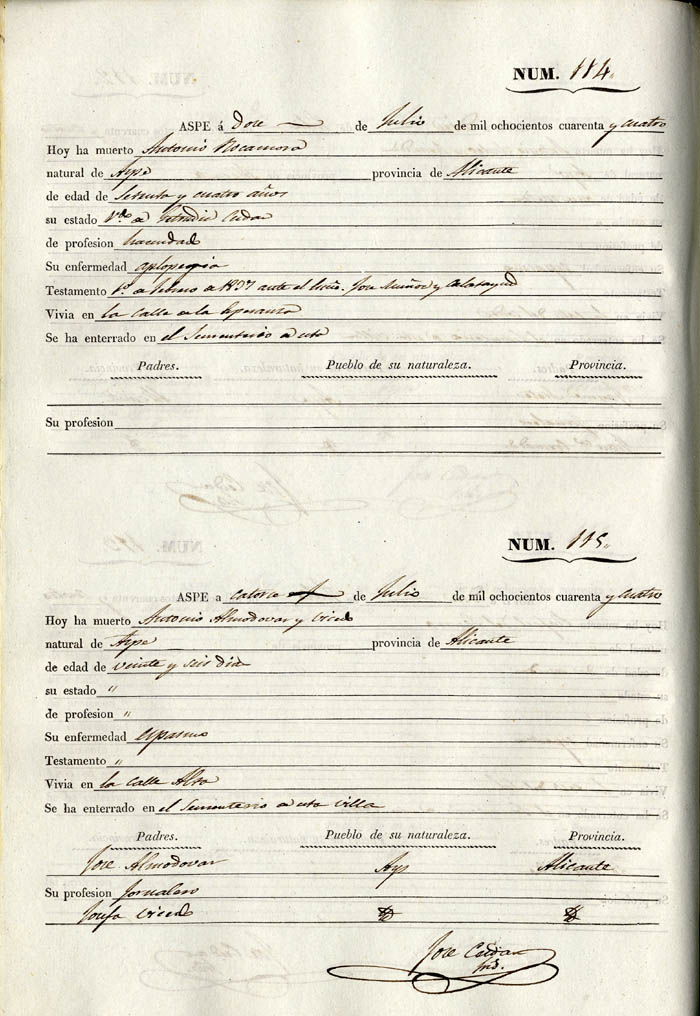 NUM. 114.
ASPE á Doce de Julio de mil ochocientos cuarenta y cuatro
Hoy ha muerto Antonio Rocamora
natural de Aspe provincia de Alicante
de edad de Setenta y cuatro años
su estado V.do de Cerdan
de profesion hacendad
Su enfermedad aplopegia
Testamento 1º de febrero de 1837 ante el Escno. Jose Muñoz y Calatayud
Vivia en la Calle de la Esperanza
Se ha enterrado en el Sementerio de esta
Padres. Pueblo de su naturaleza. Provincia.
Su profesion
NUM. 115.
ASPE a catorce de Julio de mil ochocientos cuarenta y cuatro
Hoy ha muerto Antonio Almodovar y Vicedo
natural de Aspe provincia de Alicante
de edad de veinte y seis dias
su estado "
de profesion "
Su enfermedad espasmo
Testamento "
Vivia en la Calle Alta
Se ha enterrado en el Sementerio de esta villa
Padres. Pueblo de su naturaleza. Provincia.
Jose Almodovar Asp Alicante
Su profesion Jornalero
Josefa Vicedo
Jose Cerdan